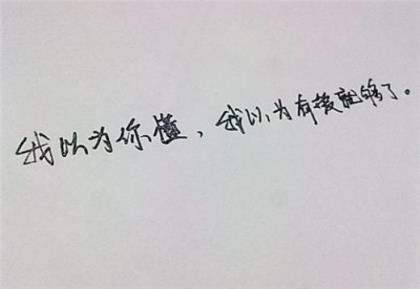 我以为你懂，我以为有爱就够了。